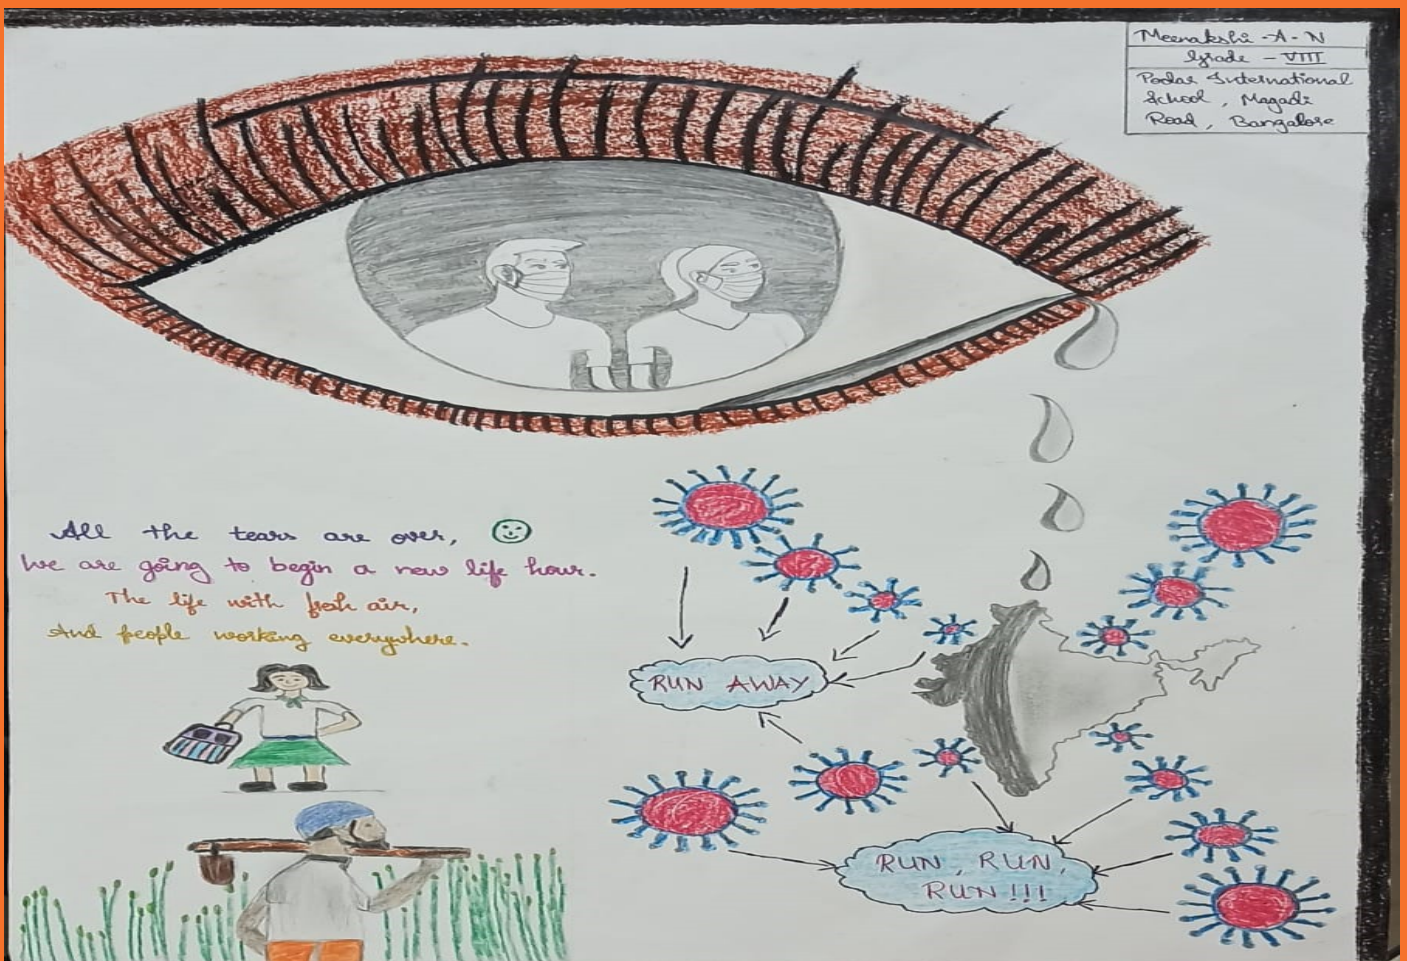 Meenakshi - A - N
Grade - VIII
Podar International
School, Magadi
Road, Bangalore
All the tears are over,
We are going to begin a new life hour.
The life with fresh air,
And people working everywhere.
RUN AWAY
RUN, RUN,
RUN!!!